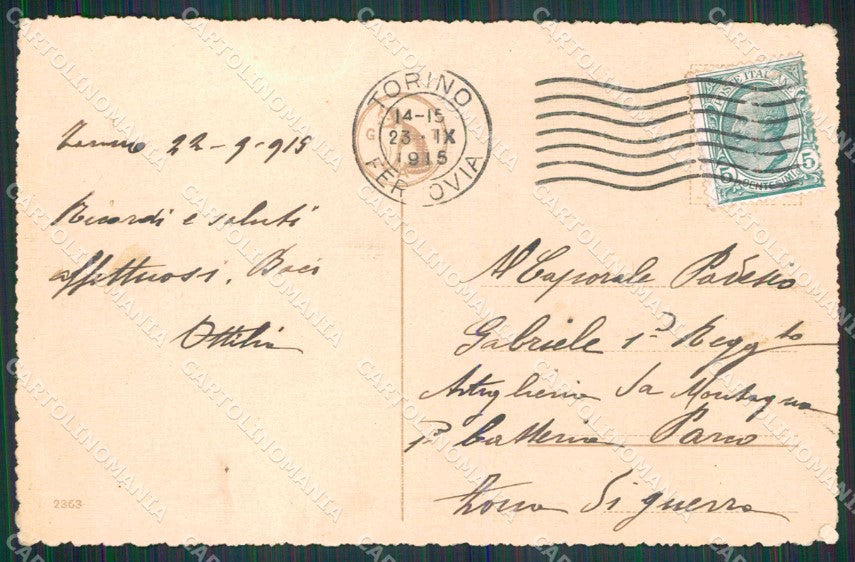 Torino 22-9-915
Ricordi e saluti
affettuosi. Baci
Ottilia
2363
TORINO
14-15
23 · IX
1915
FERROVIA
POSTE ITALIANE
5 5
CENTESIMI
Al Caporale
Gabriele 1º Regg.to
Artiglieria da Montagna
1ª batteria Parco
Zona di guerra
CARTOLINOMANIA